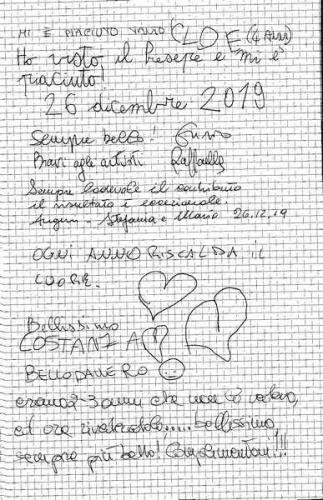 MI È PIACIUTO TANTO CLOE (4 ANNI)
Ho visto il Presepe e mi è
piaciuto!
26 dicembre 2019
Sempre bello!
Bravi agli artisti Raffaella
Sempre lodevole il contributo
il risultato è eccezionale.
Auguri - Stefania e Mario 26.12.19
OGNI ANNO RISCALDA IL
CUORE.
Bellissimo
COSTANZA
BELLO DAVVERO
erano 2-3 anni che non lo vedevo,
ed ora rivedendolo..... bellissimo,
sempre più bello! Complimentoni!!!